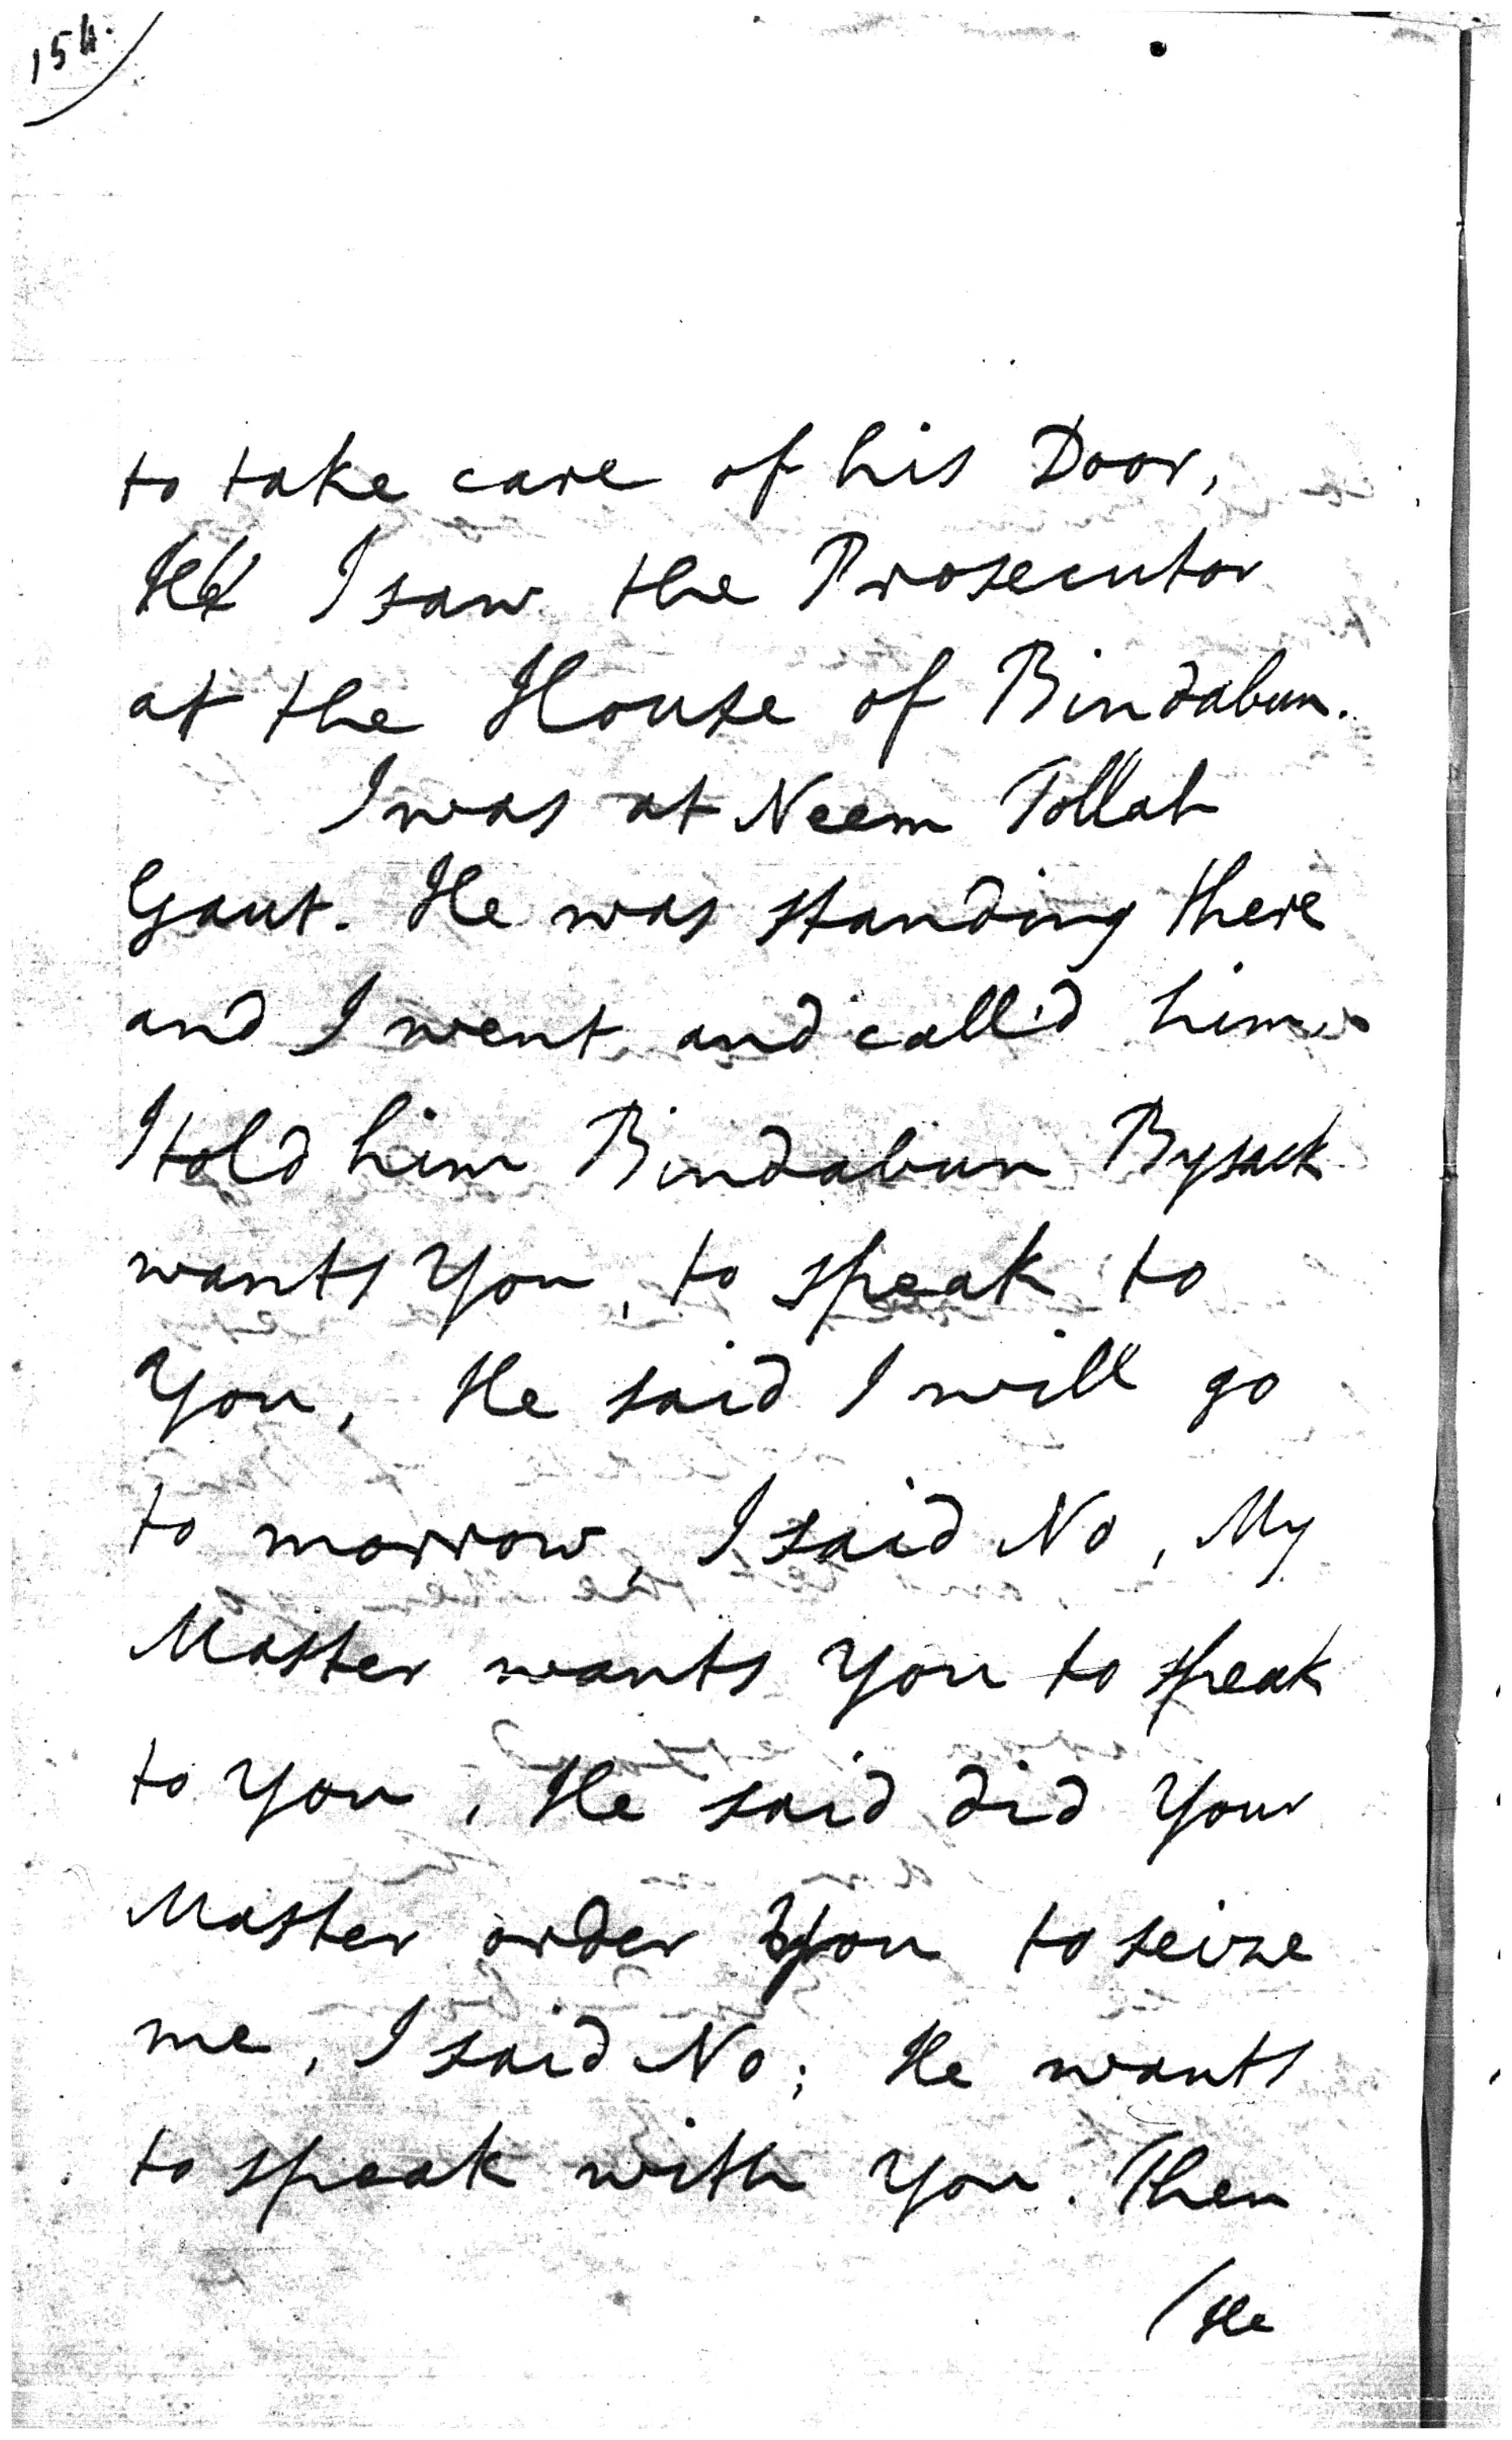 154.
to take care of his Door,
I saw the Prosecutor
at the House of Bindabun.
I was at Neem Tollah
Gaut. He was standing there
and I went and call'd him.
I told him Bindabun Bysack
wants You, to speak to
You, He said I will go
to morrow, I said No, My
Master wants You to speak
to You, He said did Your
Master order You to seize
me, I said No; He wants
to speak with You. Then
(He